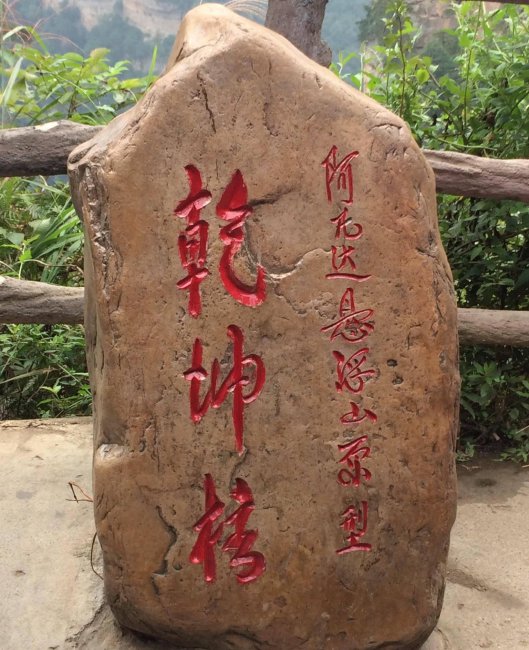 阿凡达悬浮山原型
乾坤柱